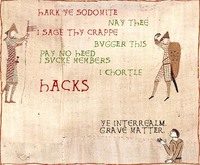 hARK YE SODOMITE
NAY THEE
I SAGE THY CRAPPE
BVGGER THIS
PAY NO HEED
I SUCKE MEMBERS
I CHORTLE
hACKS
YE INTERREALM.
GRAVE MATTER.